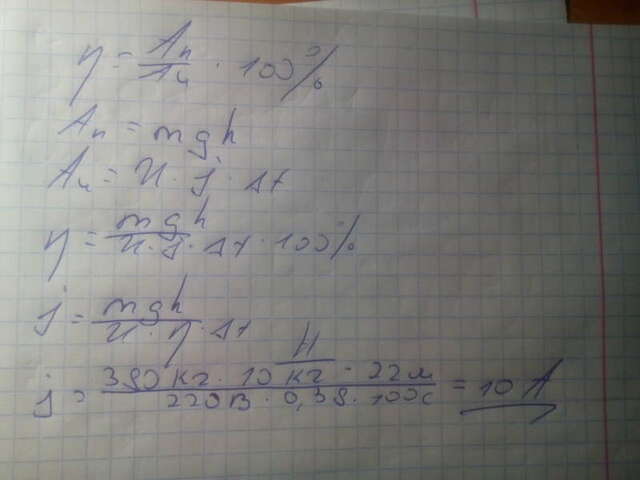 η = Aп/Aч · 100%
Aп = mgh
Aч = U · J · Δt
η = mgh/U·J·Δt · 100%
J = mgh/U·η·Δt
J = 380кг · 10 Н/кг · 22м/220В · 0,38 · 100с = 10 A